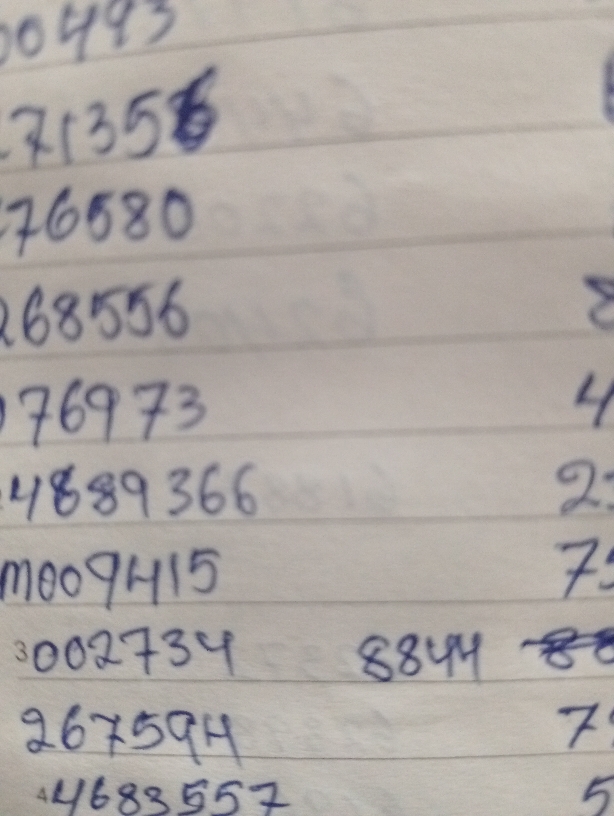 00493
27135
276580
268556 8
076973 4
4889366 2
m009415 75
3002734 8844 88
267594 7
44683557 5